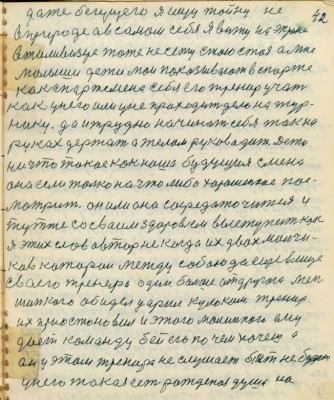 42
даже бегущего я ищу тайну не
в природе а в самом себя я вижу на экране
в тиливизре тоже не сету стою стоя а мне
малыши дети мои показывают в спорте
как спартсмена себя его тренир учат
как у него или у не приходит дело на тур-
нику. да и трудно начинать себя так на
руках держат а телом руководит дети
ни что такое как наша будущия смена
она если только на что либо хорошенькое пос-
мотрит. он или она сосредоточится и
тут же со сваим здоровям выступит как
я этих слов автор не когда их двоих мальчи-
ков каторои между собою да еще в лице
своего тренера один больше от друга мен
шинкого обидел ударил кулаком тренир
их приостоновил и этого малинкого ему
дает команду бей его по чем хочеш а
он у этом тренира не слушает бьет не будет
у него такая есть рожденая душа на